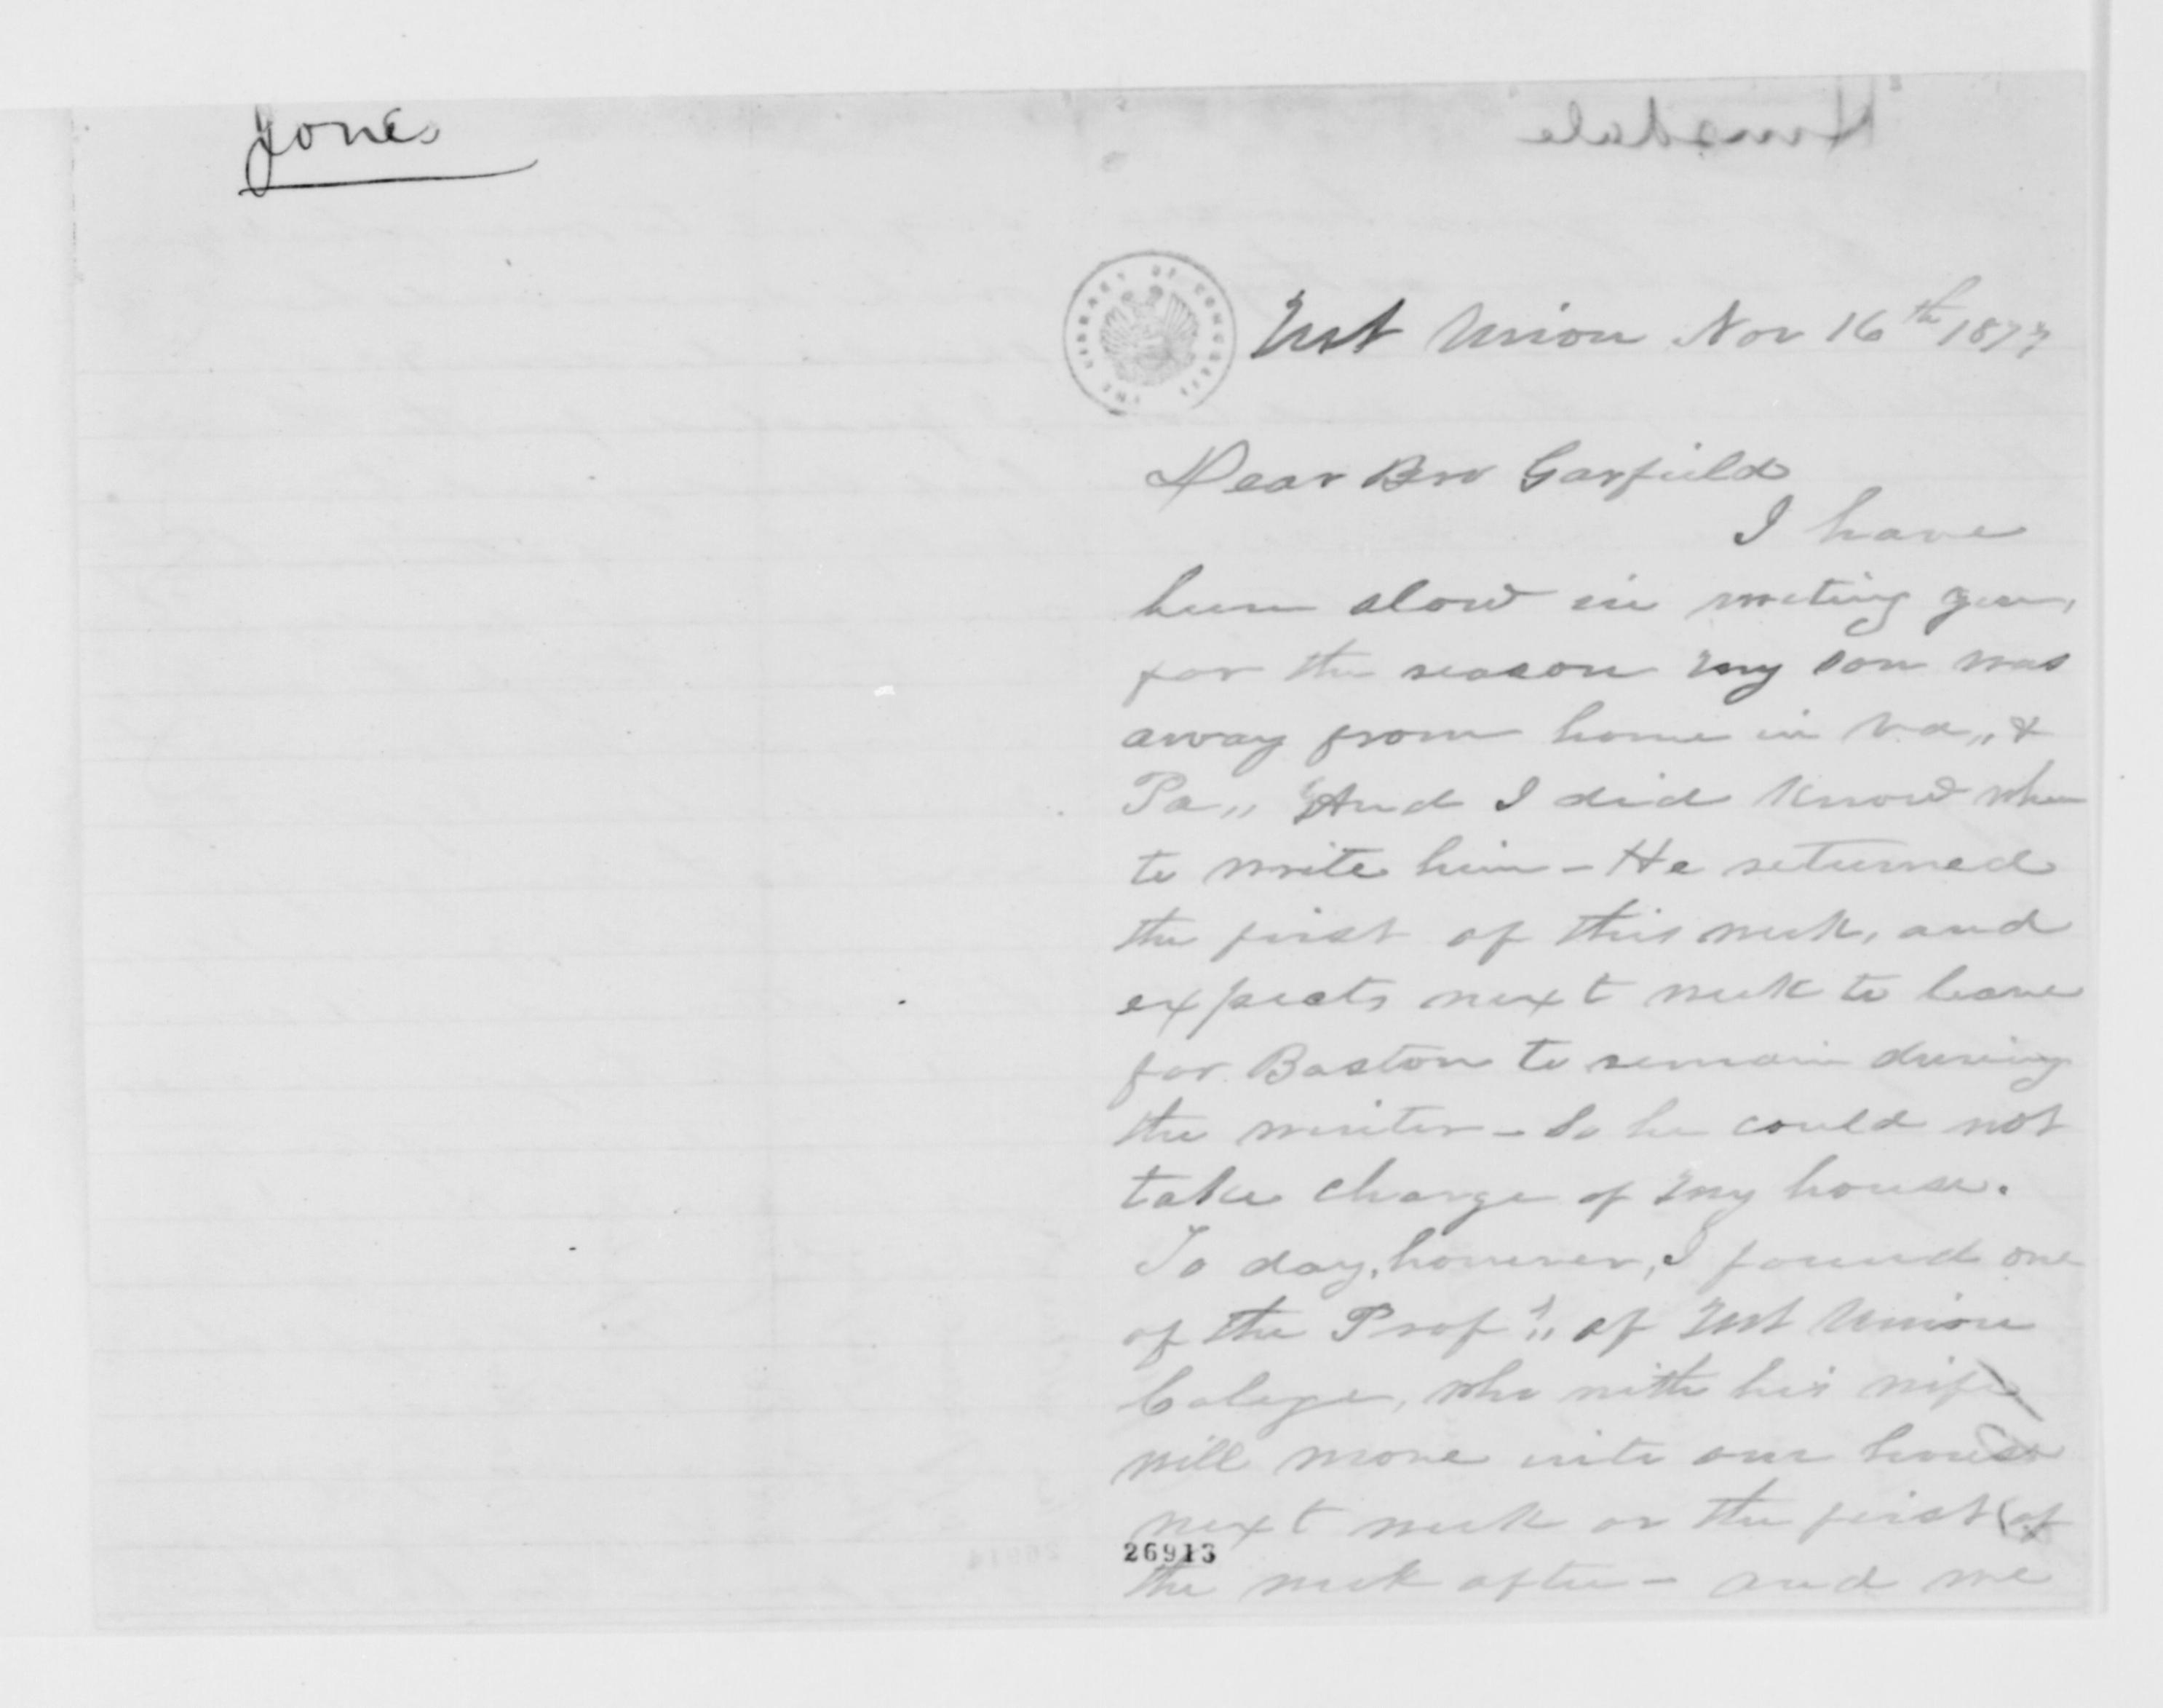 Jones
Hinsdale
THE LIBRARY OF CONGRESS
Mt Union Nov 16th 1877
Dear Bro Garfield
I have
been slow in writing you,
for the reason my son was
away from home in Va,, &
Pa,, And I did know when
to write him - He returned
the first of this week, and
expects next week to leave
for Boston to remain during
the winter - So he could not
take charge of my house.
To day, however, I found one
of the Prof's,, of Mt Union
Colege, who with his wife
will move into our house
next week or the first of
26913
the week after - and we